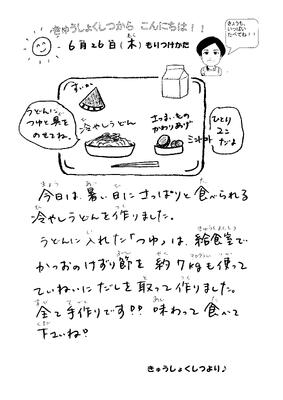 きゅうしょくしつから こんにちは！！
6月26日(木)もりつけかた
きょうも、
いっぱい
たべてね！！
すいか
うどんに、
つゆと具を
のせてね。
冷やしうどん
さつまいもの
かわりあげ
ミニトマト
ひとり
2こ
だよ
今日は、暑い日にさっぱりと食べられる
冷やしうどんを作りました。
うどんに入れた「つゆ」は、給食室で
かつおのけずり節を約7kgも使って
ていねいにだしを取って作りました。
全て手作りです!! 味わって食べて
下さいね♡
きゅうしょくしつより♪